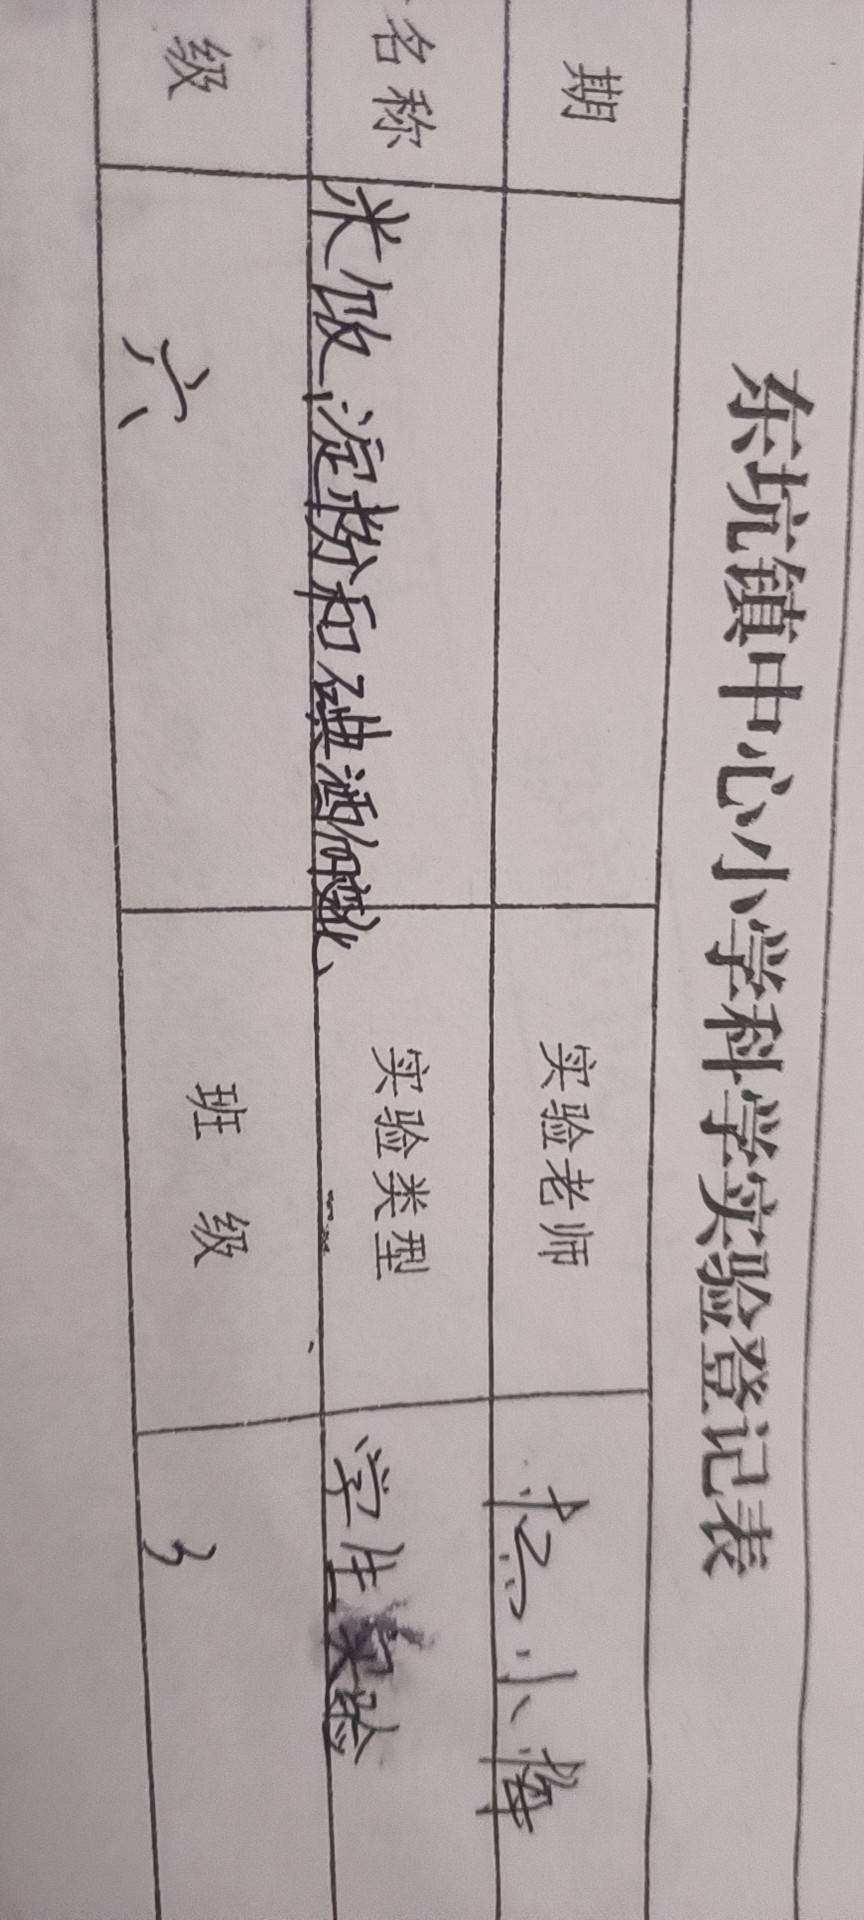 东坑镇中心小学科学实验登记表
期 实验老师 小梅
名称 米饭、淀粉和碘酒的变化 实验类型 学生实验
级 六 班级 3